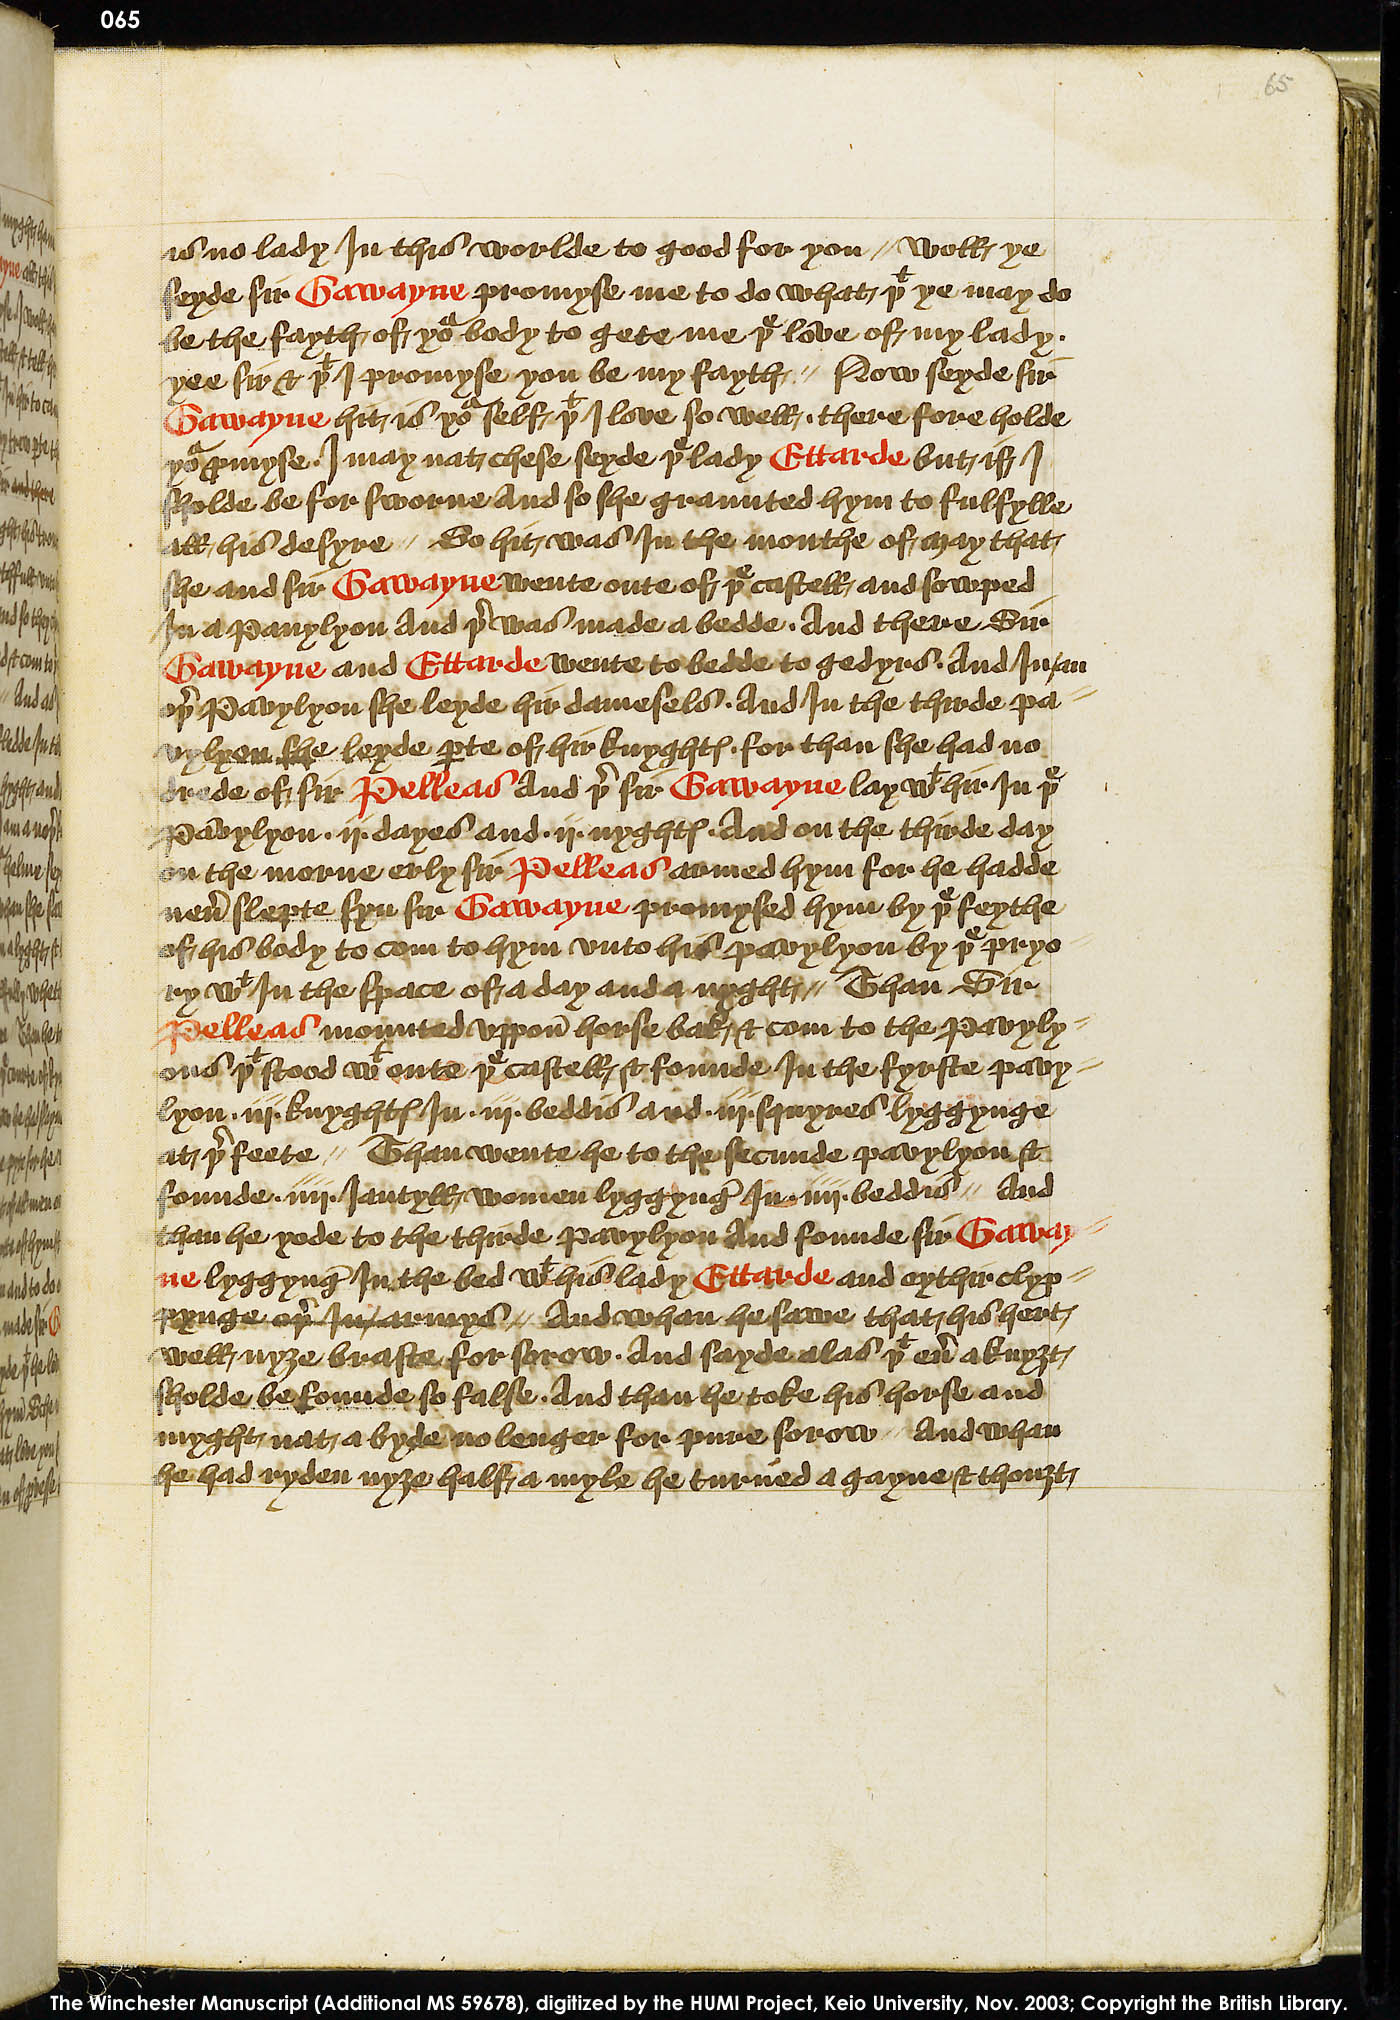 065
65
is no lady In this worlde to good for you // Woll ye
seyde sir Gawayne promyse me to do what þᵗ ye may do
be the fayth of yoᵘ body to gete me þᵉ love of my lady .
yee sir & þᵗ I promyse you be my fayth // Now seyde sir
Gawayne hit is yoᵘ self þᵗ I love so well . there fore holde
yoᵘ ꝓmyse . I may nat chese seyde þᵉ lady Ettarde but if I
sholde be for sworne And so she graunted hym to fulfylle
all his desyre // So hit was In the monthe of May that
she and sir Gawayne wente oute of þᵉ castell and sowped
In a Pavylyon And þ̄r was made a bedde . And there Sir
Gawayne and Ettarde wente to bedde to gedyrs . And In an
oþ̄r Pavylyon she leyde hir damesels . And In the thirde pa//
vylyon she leyde ꝑte of hir knyghtꝭ . for than she had no
drede of sir Pelleas And þ̄r sir Gawayne lay wᵗ hir In þᵉ
Pavylyon . ij . dayes and . ij . nyghtꝭ . And on the thirde day
on the morne erly sir Pelleas armed hym for he hadde
neu̅ slepte syn sir Gawayne promysed hym by þᵉ feythe
of his body to com to hym vnto his pavylyon by þᵉ pryo//
ry wᵗ In the space of a day and a nyght // Than Sir
Pelleas mounted vppon̄ horse bak & com to the Pavyly//
ons þᵗ stood wᵗ oute þᵉ castell & founde In the fyrste pavy//
lyon . iij . knyghtꝭ In . iij . beddis and . iij . squyres lyggynge
at þ̄r feete // Than wente he to the secunde pavylyon &
founde . iiij . Jantyll women lyggyng̅ In . iiij . beddis // And
than he yode to the thirde pavylyon And founde sir Gaway//
ne lyggyng̅ In the bed wᵗ his lady Ettarde and eythir clyp//
pynge oþ̄r In armys // And whan he sawe that his hert
well nyȝe braste for sorow . And sayde alas þᵗ eu̅ a knyȝt
sholde be founde so false . And than he toke his horse and
myght nat a byde no lenger for pure sorow // And whan
he had ryden nyȝe half a myle he turned a gayne & thouȝt
The Winchester Manuscript (Additional MS 59678), digitized by the HUMI Project, Keio University, Nov. 2003; Copyright the British Library.